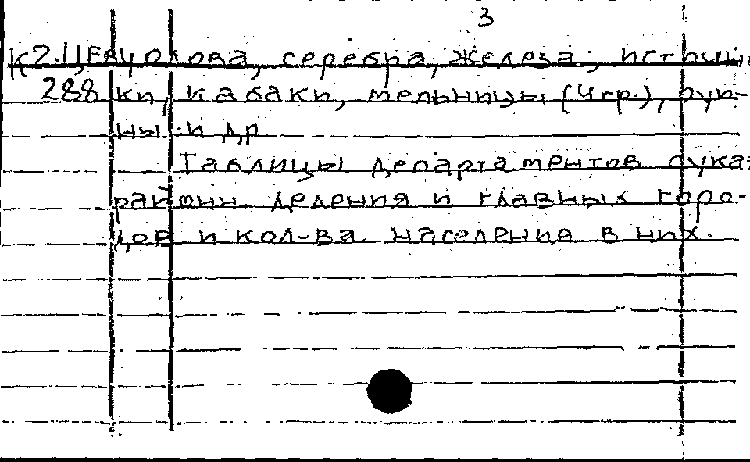 3
К2.Ц, олова, серебра, железа; источни-
288 ки, кабаки, мельницы (4 гр.), руи-
ны и др
Таблицы департаментов с ука-
админ. деления и главных горо-
дов и кол-ва населения в них.